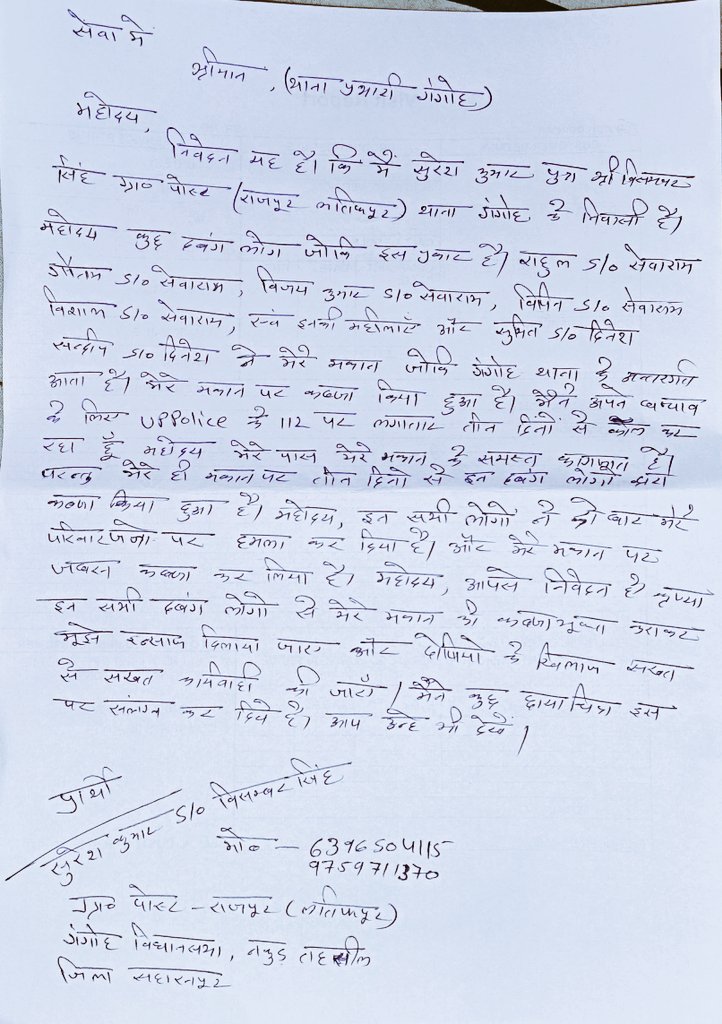 सेवा में
श्रीमान, (थाना प्रभारी गंगोह)
महोदय,
निवेदन यह है। कि मैं सुरेश कुमार पुत्र श्री विसम्बर
सिंह ग्रा० पोस्ट (राजपूर लतिफपूर) थाना गंगोह के निवासी है।
महोदय कुछ दबंग लोग जोकि इस प्रकार है। राहुल S/o सेवाराम
गौतम S/o सेवाराम, विजय कुमार S/o सेवाराम, विपिन S/o सेवाराम
विशाल S/o सेवाराम, एवं इनकी महीलाएँ और सुमित S/o दिनेश
सन्दीप S/o दिनेश ने मेरे मकान जोकि गंगोह थाना के अन्तरर्गत
आता है। मेरे मकान पर कब्जा किया हुआ है। मैंने अपने बचाव
के लिए UPPolice के 112 पर लगातार तीन दिनों से कॉल कर
रहा हूँ महोदय मेरे पास मेरे मकान के समस्त कागजात है।
परन्तु मेरे ही मकान पर तीन दिनों से इन दबंग लोगो द्वारा
कब्जा किया हुआ है। महोदय, इन सभी लोगों ने दो बार मेरे
परिवारजनो पर हमला कर दिया है। और मेरे मकान पर
जबरन कब्जा कर लिया है। महोदय, आपसे निवेदन है। कृप्या
इन सभी दबंग लोगो से मेरे मकान को कब्जामुक्त कराकर
मूझे इन्साफ दिलाया जाए और दोषियो के खिलाफ सख्त
से सख्त कार्यवाही की जाएँ। मैंने कुछ छायाचित्र इस
पर संलग्न कर दिये है। आप उन्हे भी देखें।
प्रार्थी
सुरेश कुमार S/o विसम्बर सिंह
मो० - 6396504115
9759711370
ग्रा० पोस्ट - राजपूर (लतिफपूर)
गंगोह विधानसभा, नकुड़ तहसील
जिला सहारनपूर